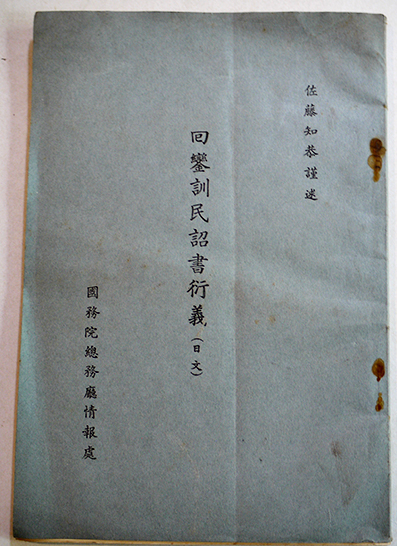 佐藤知恭謹述
回鑾訓民詔書衍義(日文)
國務院總務廳情報處